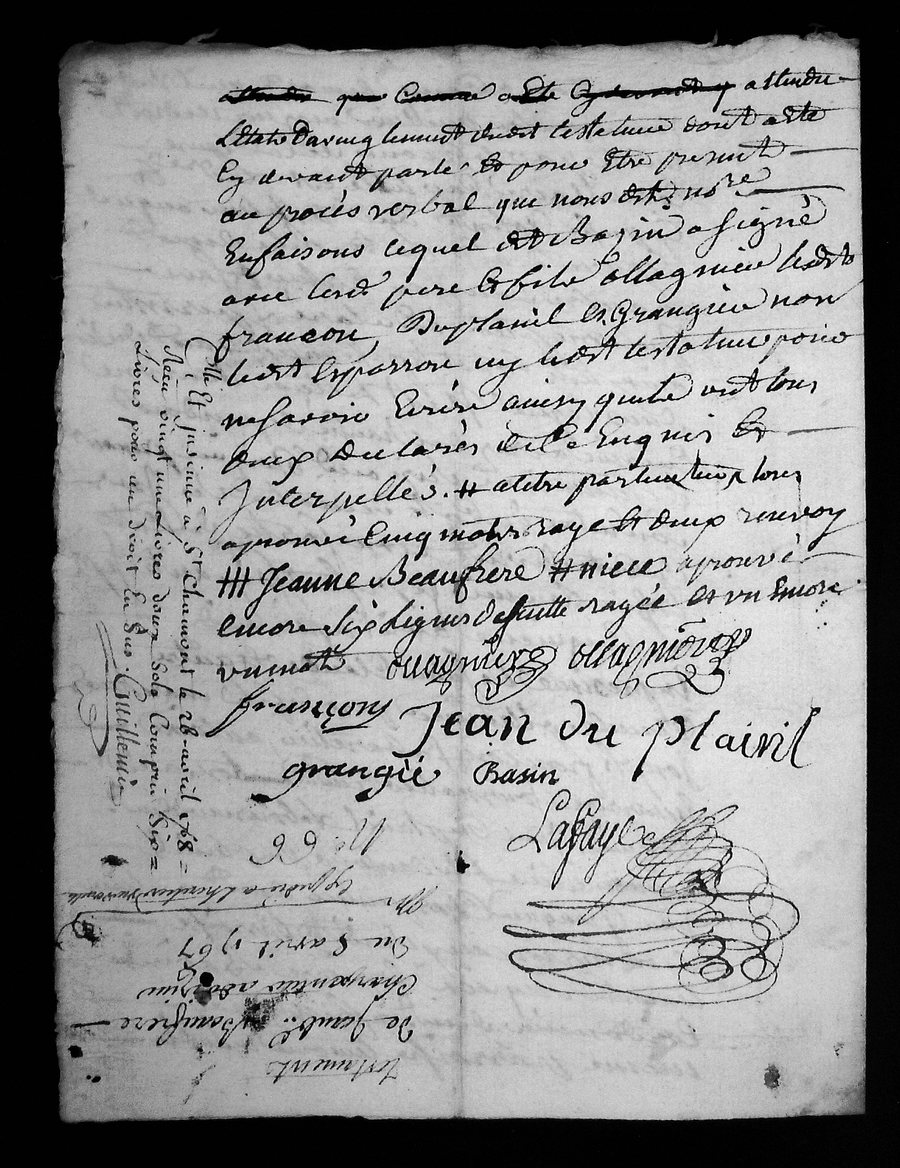 attendu que comme a été cy devant p attendu
L'Etat d'aveuglement dudit testateur dont a ete
Cy devant parlé Et pour Etre present
au procés verbal que nous dit nore
En faisons lequel dt Bazin a signé
avec lesds pere Et fils ollagnier lesdts
françon, Duplainil Et Grangier non
ledt Esparron ny ledt testateur pour
ne savoir Ecrire ainsy quils ont tous
deux declarés de ce Enquis Et
Interpellés. # a titre particulier tous
aprouvé Cinq mots rayé Et deux renvoy
### Jeanne Beaufrere # niece aprouvé
encore six lignes rayée et un Encore
un mot ollagnier ollagnier
françon Jean du plainil
grangié Basin
Lafaye
Collé Et insinué à St Chamont le 28 avril 1768 =
Reçu vingt une Livres douze sols Compris six =
Livres pour un droit En sus. Guillemin
Testament
de Jean Beaufrere
Charpentier
Du 8 avril 1767
Expedié a
No 66